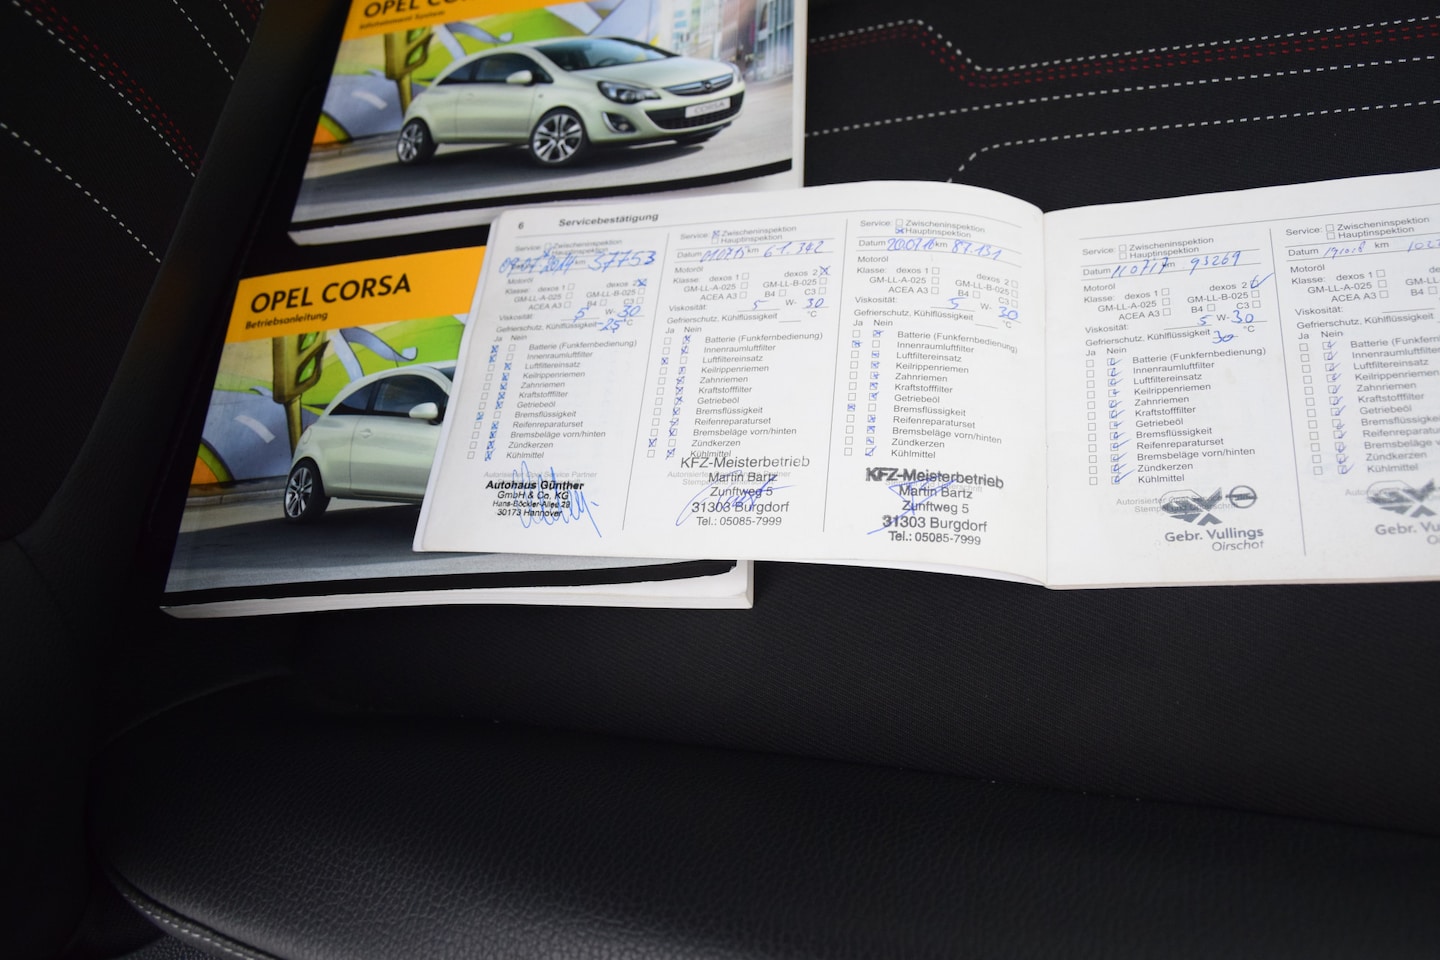 OPEL
Infotainment System
CORSA
OPEL CORSA
Betriebsanleitung
6 Servicebestätigung
Service: Zwischeninspektion
Hauptinspektion
2014 km 57753
Motoröl
Klasse: dexos 1 dexos 2
GM-LL-A-025 GM-LL-B-025
ACEA A3 B4 C3
Viskosität: 5 W- 30
Gefrierschutz, Kühlflüssigkeit -25 °C
Ja Nein
Batterie (Funkfernbedienung)
Innenraumluftfilter
Luftfiltereinsatz
Keilrippenriemen
Zahnriemen
Kraftstofffilter
Getriebeöl
Bremsflüssigkeit
Reifenreparaturset
Bremsbeläge vorn/hinten
Zündkerzen
Kühlmittel
Autohaus Günther
GmbH & Co. KG
Hans-Böckler-Allee 29
30173 Hannover
Service: Zwischeninspektion
Hauptinspektion
Datum km 61.342
Motoröl
Klasse: dexos 1 dexos 2
GM-LL-A-025 GM-LL-B-025
ACEA A3 B4 C3
Viskosität: 5 W- 30
Gefrierschutz, Kühlflüssigkeit °C
Ja Nein
Batterie (Funkfernbedienung)
Innenraumluftfilter
Luftfiltereinsatz
Keilrippenriemen
Zahnriemen
Kraftstofffilter
Getriebeöl
Bremsflüssigkeit
Reifenreparaturset
Bremsbeläge vorn/hinten
Zündkerzen
Kühlmittel
KFZ-Meisterbetrieb
Martin Bartz
Zunftweg 5
31303 Burgdorf
Tel.: 05085-7999
Service: Zwischeninspektion
Hauptinspektion
Datum km 87.131
Motoröl
Klasse: dexos 1 dexos 2
GM-LL-A-025 GM-LL-B-025
ACEA A3 B4 C3
Viskosität: 5 W- 30
Gefrierschutz, Kühlflüssigkeit °C
Ja Nein
Batterie (Funkfernbedienung)
Innenraumluftfilter
Luftfiltereinsatz
Keilrippenriemen
Zahnriemen
Kraftstofffilter
Getriebeöl
Bremsflüssigkeit
Reifenreparaturset
Bremsbeläge vorn/hinten
Zündkerzen
Kühlmittel
KFZ-Meisterbetrieb
Martin Bartz
Zunftweg 5
31303 Burgdorf
Tel.: 05085-7999
Service: Zwischeninspektion
Hauptinspektion
Datum 110717 km 93269
Motoröl
Klasse: dexos 1 dexos 2
GM-LL-A-025 GM-LL-B-025
ACEA A3 B4 C3
Viskosität: 5 W- 30
Gefrierschutz, Kühlflüssigkeit 30 °C
Ja Nein
Batterie (Funkfernbedienung)
Innenraumluftfilter
Luftfiltereinsatz
Keilrippenriemen
Zahnriemen
Kraftstofffilter
Getriebeöl
Bremsflüssigkeit
Reifenreparaturset
Bremsbeläge vorn/hinten
Zündkerzen
Kühlmittel
Gebr. Vullings
Oirschot
Service: Zwischeninspektion
Hauptinspektion
Datum km
Motoröl
Klasse: dexos 1
GM-LL-A-025
ACEA A3 B4
Viskosität:
Gefrierschutz, Kühlflüssigkeit
Ja Nein
Innenraumluftfilter
Luftfiltereinsatz
Keilrippenriemen
Zahnriemen
Kraftstofffilter
Getriebeöl
Bremsflüssigkeit
Bremsbeläge
Zündkerzen
Kühlmittel
Gebr.